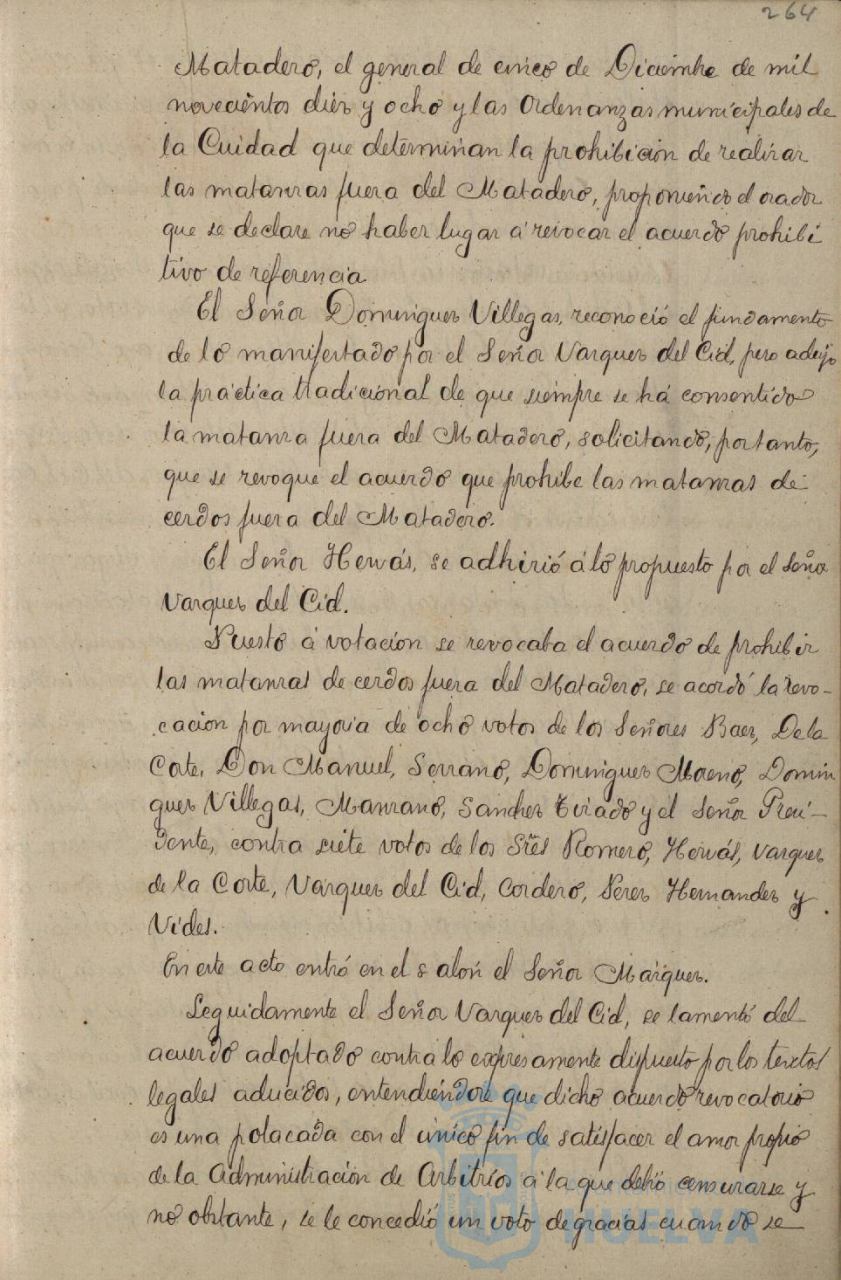 264
Matadero, el general de cinco de Diciembre de mil
novecientos diez y ocho y las Ordenanzas municipales de
la Cuidad que determinan la prohibición de realizar
las matanzas fuera del Matadero, proponiendo el orador
que se declare no haber lugar á revocar el acuerdo prohibi
tivo de referencia
El Señor Dominguez Villegas, reconoció el fundamento
de lo manifestado por el Señor Vazquez del Cid, pero adujo
la práctica tradicional de que siempre se há consentido
la matanza fuera del Matadero, solicitando, por tanto,
que se revoque el acuerdo que prohibe las matanzas de
cerdos fuera del Matadero.
El Señor Hervás, se adhirió á lo propuesto por el Señor
Vazquez del Cid.
Puesto á votación se revocaba el acuerdo de prohibir
las matanzas de cerdos fuera del Matadero, se acordó la revo-
cación por mayoria de ocho votos de los Señores Baez, De la
Corte, Don Manuel, Serrano, Dominguez Moreno, Domin
guez Villegas, Manzano, Sanchez Tirado y el Señor Presi-
dente, contra siete votos de los Srēs Romero, Hervás, Vazquez
de la Corte, Vazquez del Cid, Cordero, Perez Hernandez y
Vides.
En este acto entró en el salón el Señor Márquez.
Seguidamente el Señor Vazquez del Cid, se lamentó del
acuerdo adoptado contra lo expresamente dispuesto por los textos
legales aducidos, entendiéndose que dicho acuerdo revocatorio
es una polacada con el único fin de satisfacer el amor propio
de la Administración de Arbitrios á la que debió censurarse y
no obstante, se le concedió un voto de gracias cuando se
HUELVA